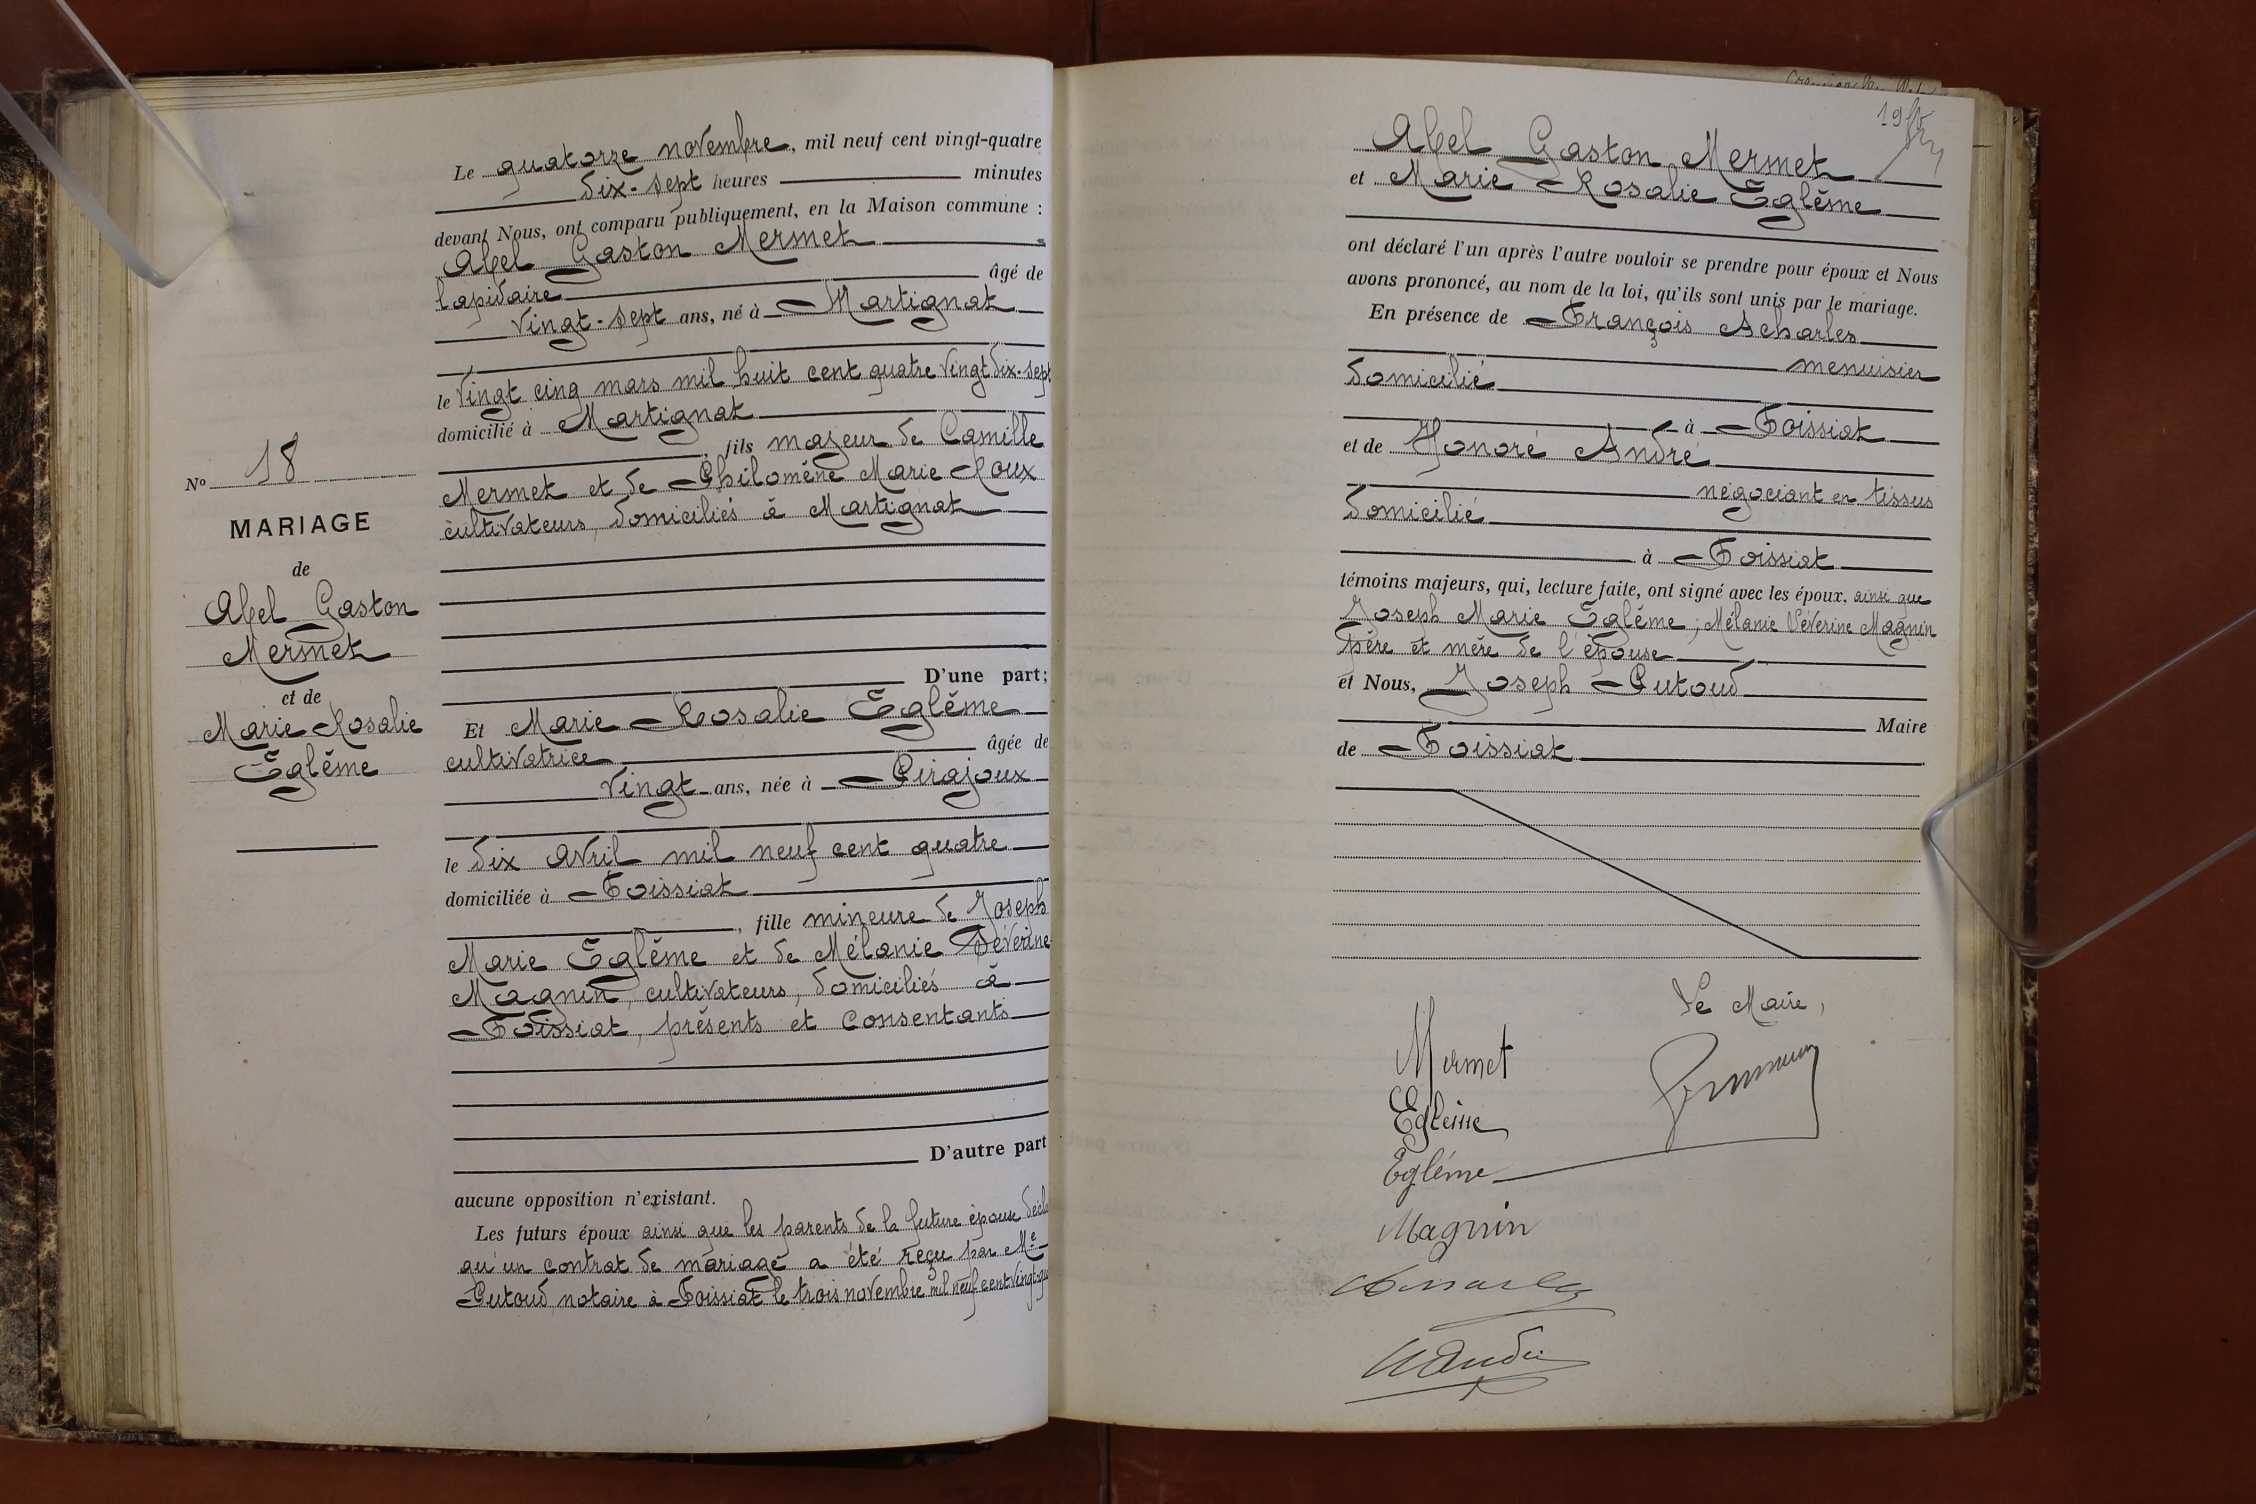 Nº 18
MARIAGE
de
Abel Gaston
Mermet
et de
Marie Rosalie
Eglème
Le quatorze novembre, mil neuf cent vingt-quatre
dix-sept heures minutes
devant Nous, ont comparu publiquement, en la Maison commune :
Abel Gaston Mermet
lapidaire âgé de
vingt-sept ans, né à Martignat
le vingt cinq mars mil huit cent quatre vingt dix-sept
domicilié à Martignat
, fils majeur de Camille
Mermet et de Philomène Marie Roux
cultivateurs, domiciliés à Martignat
D'une part;
Et Marie Rosalie Eglème
cultivatrice âgée de
vingt ans, née à Pirajoux
le dix avril mil neuf cent quatre
domiciliée à Foissiat
, fille mineure de Joseph
Marie Eglème et de Mélanie Séverine
Magnin, cultivateurs, domiciliés à
Foissiat, présents et consentants
D'autre part
aucune opposition n'existant.
Les futurs époux ainsi que les parents de la future épouse décla
qu'un contrat de mariage a été reçu par Me
Putoud notaire à Foissiat le trois novembre mil neuf cent vingt-qua
Abel Gaston Mermet
et Marie Rosalie Eglème
ont déclaré l'un après l'autre vouloir se prendre pour époux et Nous
avons prononcé, au nom de la loi, qu'ils sont unis par le mariage.
En présence de François Acharles
menuisier
domicilié
à Foissiat
et de Honoré André
négociant en tissus
domicilié
à Foissiat
témoins majeurs, qui, lecture faite, ont signé avec les époux, ainsi que
Joseph Marie Eglème ; Mélanie Séverine Magnin
père et mère de l'épouse
et Nous, Joseph Putoud
Maire
de Foissiat
Le Maire,
Mermet
Egleme
Egléme
Magnin